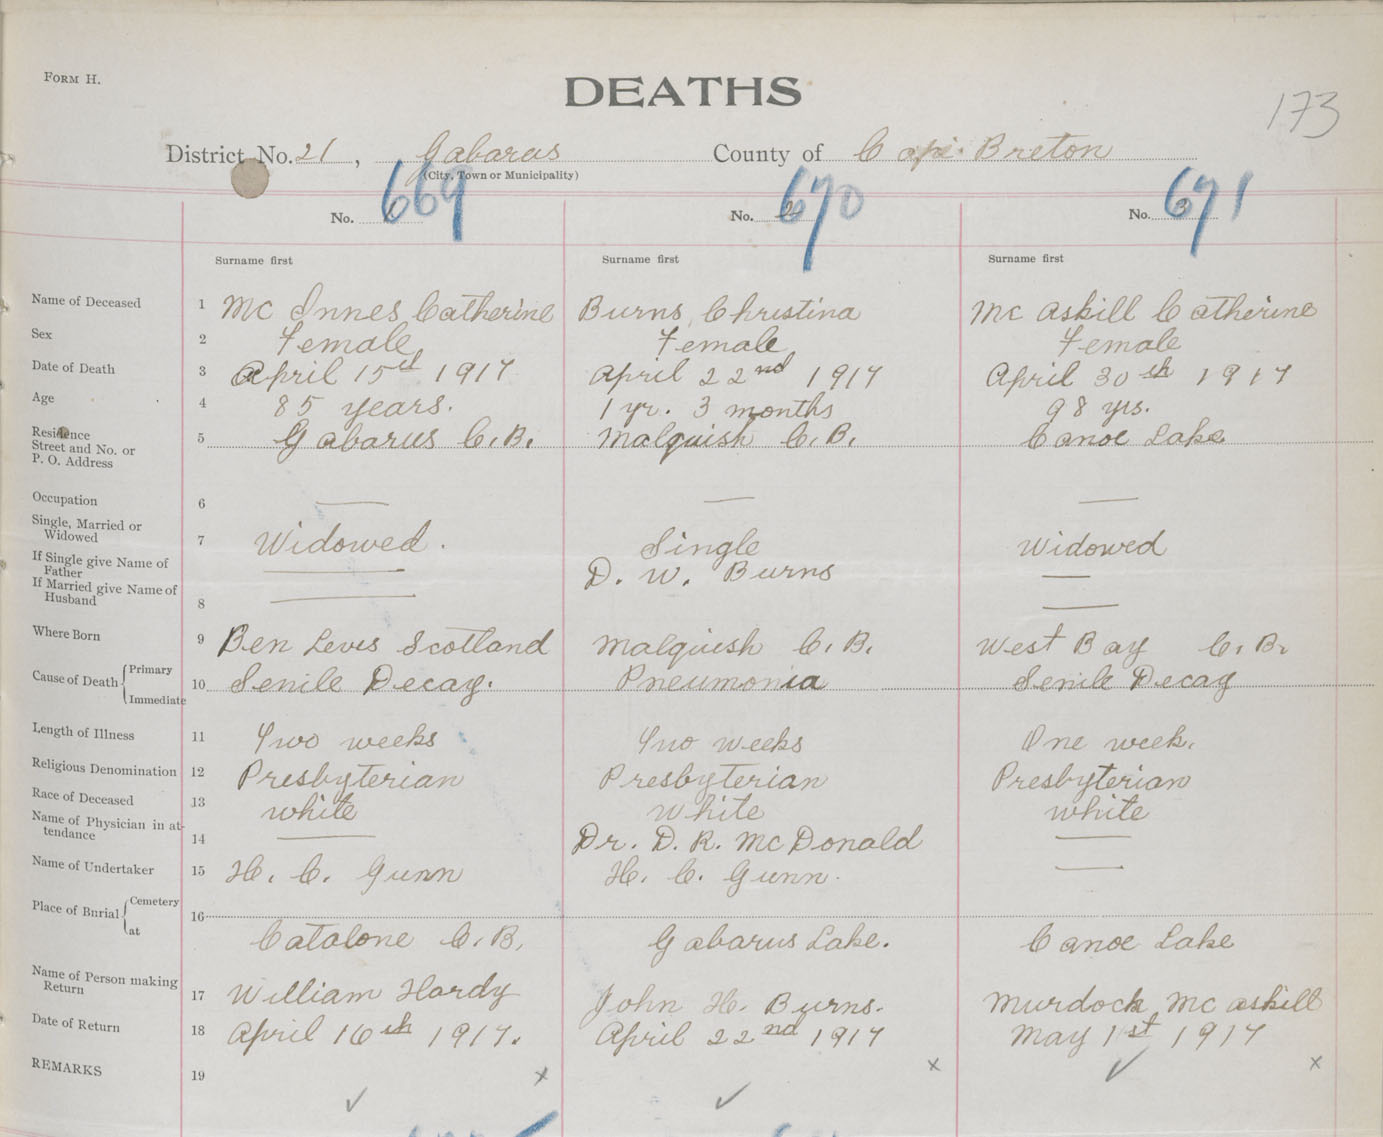 FORM H.
DEATHS
173
District No. 21, Gabarus County of Cape Breton
(City, Town or Municipality)
No. 1 669 No. 2 670 No. 3 671
Surname first Surname first Surname first
Name of Deceased 1 Mc Innes Catherine Burns, Christina Mc Askill Catherine
Sex 2 Female Female Female
Date of Death 3 April 15th 1917 April 22nd 1917 April 30th 1917
Age 4 85 years. 1 yr. 3 months 98 yrs.
Residence
Street and No. or 5 Gabarus C.B. Malquish C.B. Canoe Lake
P. O. Address
Occupation 6 — — —
Single, Married or
Widowed 7 Widowed. Single Widowed
If Single give Name of
Father — D. W. Burns —
If Married give Name of
Husband 8 — —
Where Born 9 Ben Levis Scotland Malquish C.B. West Bay C.B.
Cause of Death { Primary
Immediate 10 Senile Decay. Pneumonia Senile Decay
Length of Illness 11 Two weeks Two weeks One week.
Religious Denomination 12 Presbyterian Presbyterian Presbyterian
Race of Deceased 13 white white white
Name of Physician in at-
tendance 14 — Dr. D. R. McDonald —
Name of Undertaker 15 H. C. Gunn H. C. Gunn. —
Place of Burial { Cemetery 16
at Catalone C.B. Gabarus Lake. Canoe Lake
Name of Person making
Return 17 William Hardy John H. Burns. Murdock McAskill
Date of Return 18 April 16th 1917. April 22nd 1917 May 1st 1917
REMARKS 19 x x x
✓ ✓ ✓